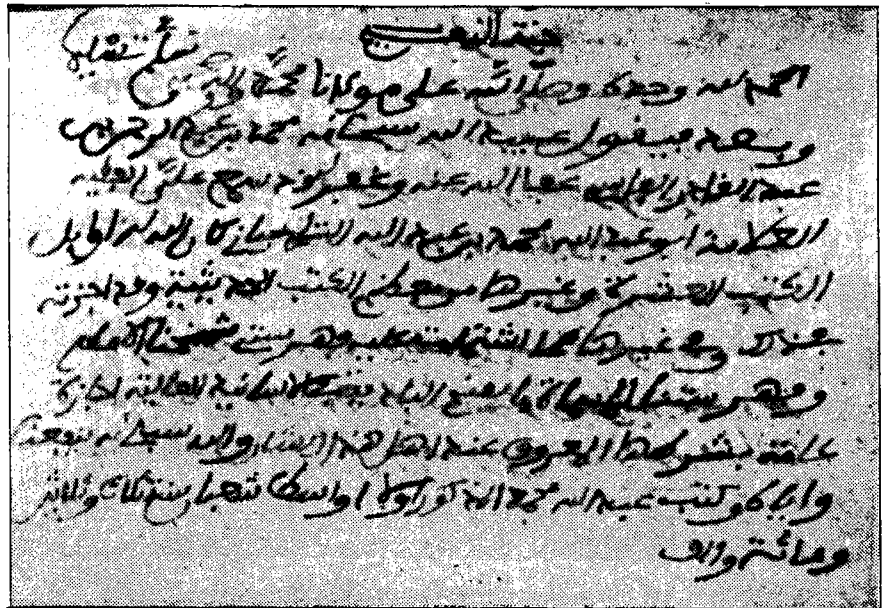 الحمد لله وحده وصلى الله على مولانا محمد وآله
وبعد فيقول عبيد الله سبحانه محمد بن عبد الرحمن بن
عبد القادر الفاسي عفا الله عنه وغفر له قد سمع علي الفقيه
العلامة ابو عبد الله محمد بن عبد الله كان الله له اوايل
الكتب العشرة وغيرها من معظم الكتب الحديثية وقد اجزته
بذلك وفي غيرها مما اشتملت عليه فهرست شيخنا الامام
وفهرستنا المسماة بالمنح البادية في الاسانيد العالية اجازة
عامة بشرطها المعروف عند اهل هذا الشان والله سبحانه ينفعنا
واياه وكتب عبيد الله محمد المذكور اولا اواسط شعبان سنة ثلاث وثلاثين
ومائة والف